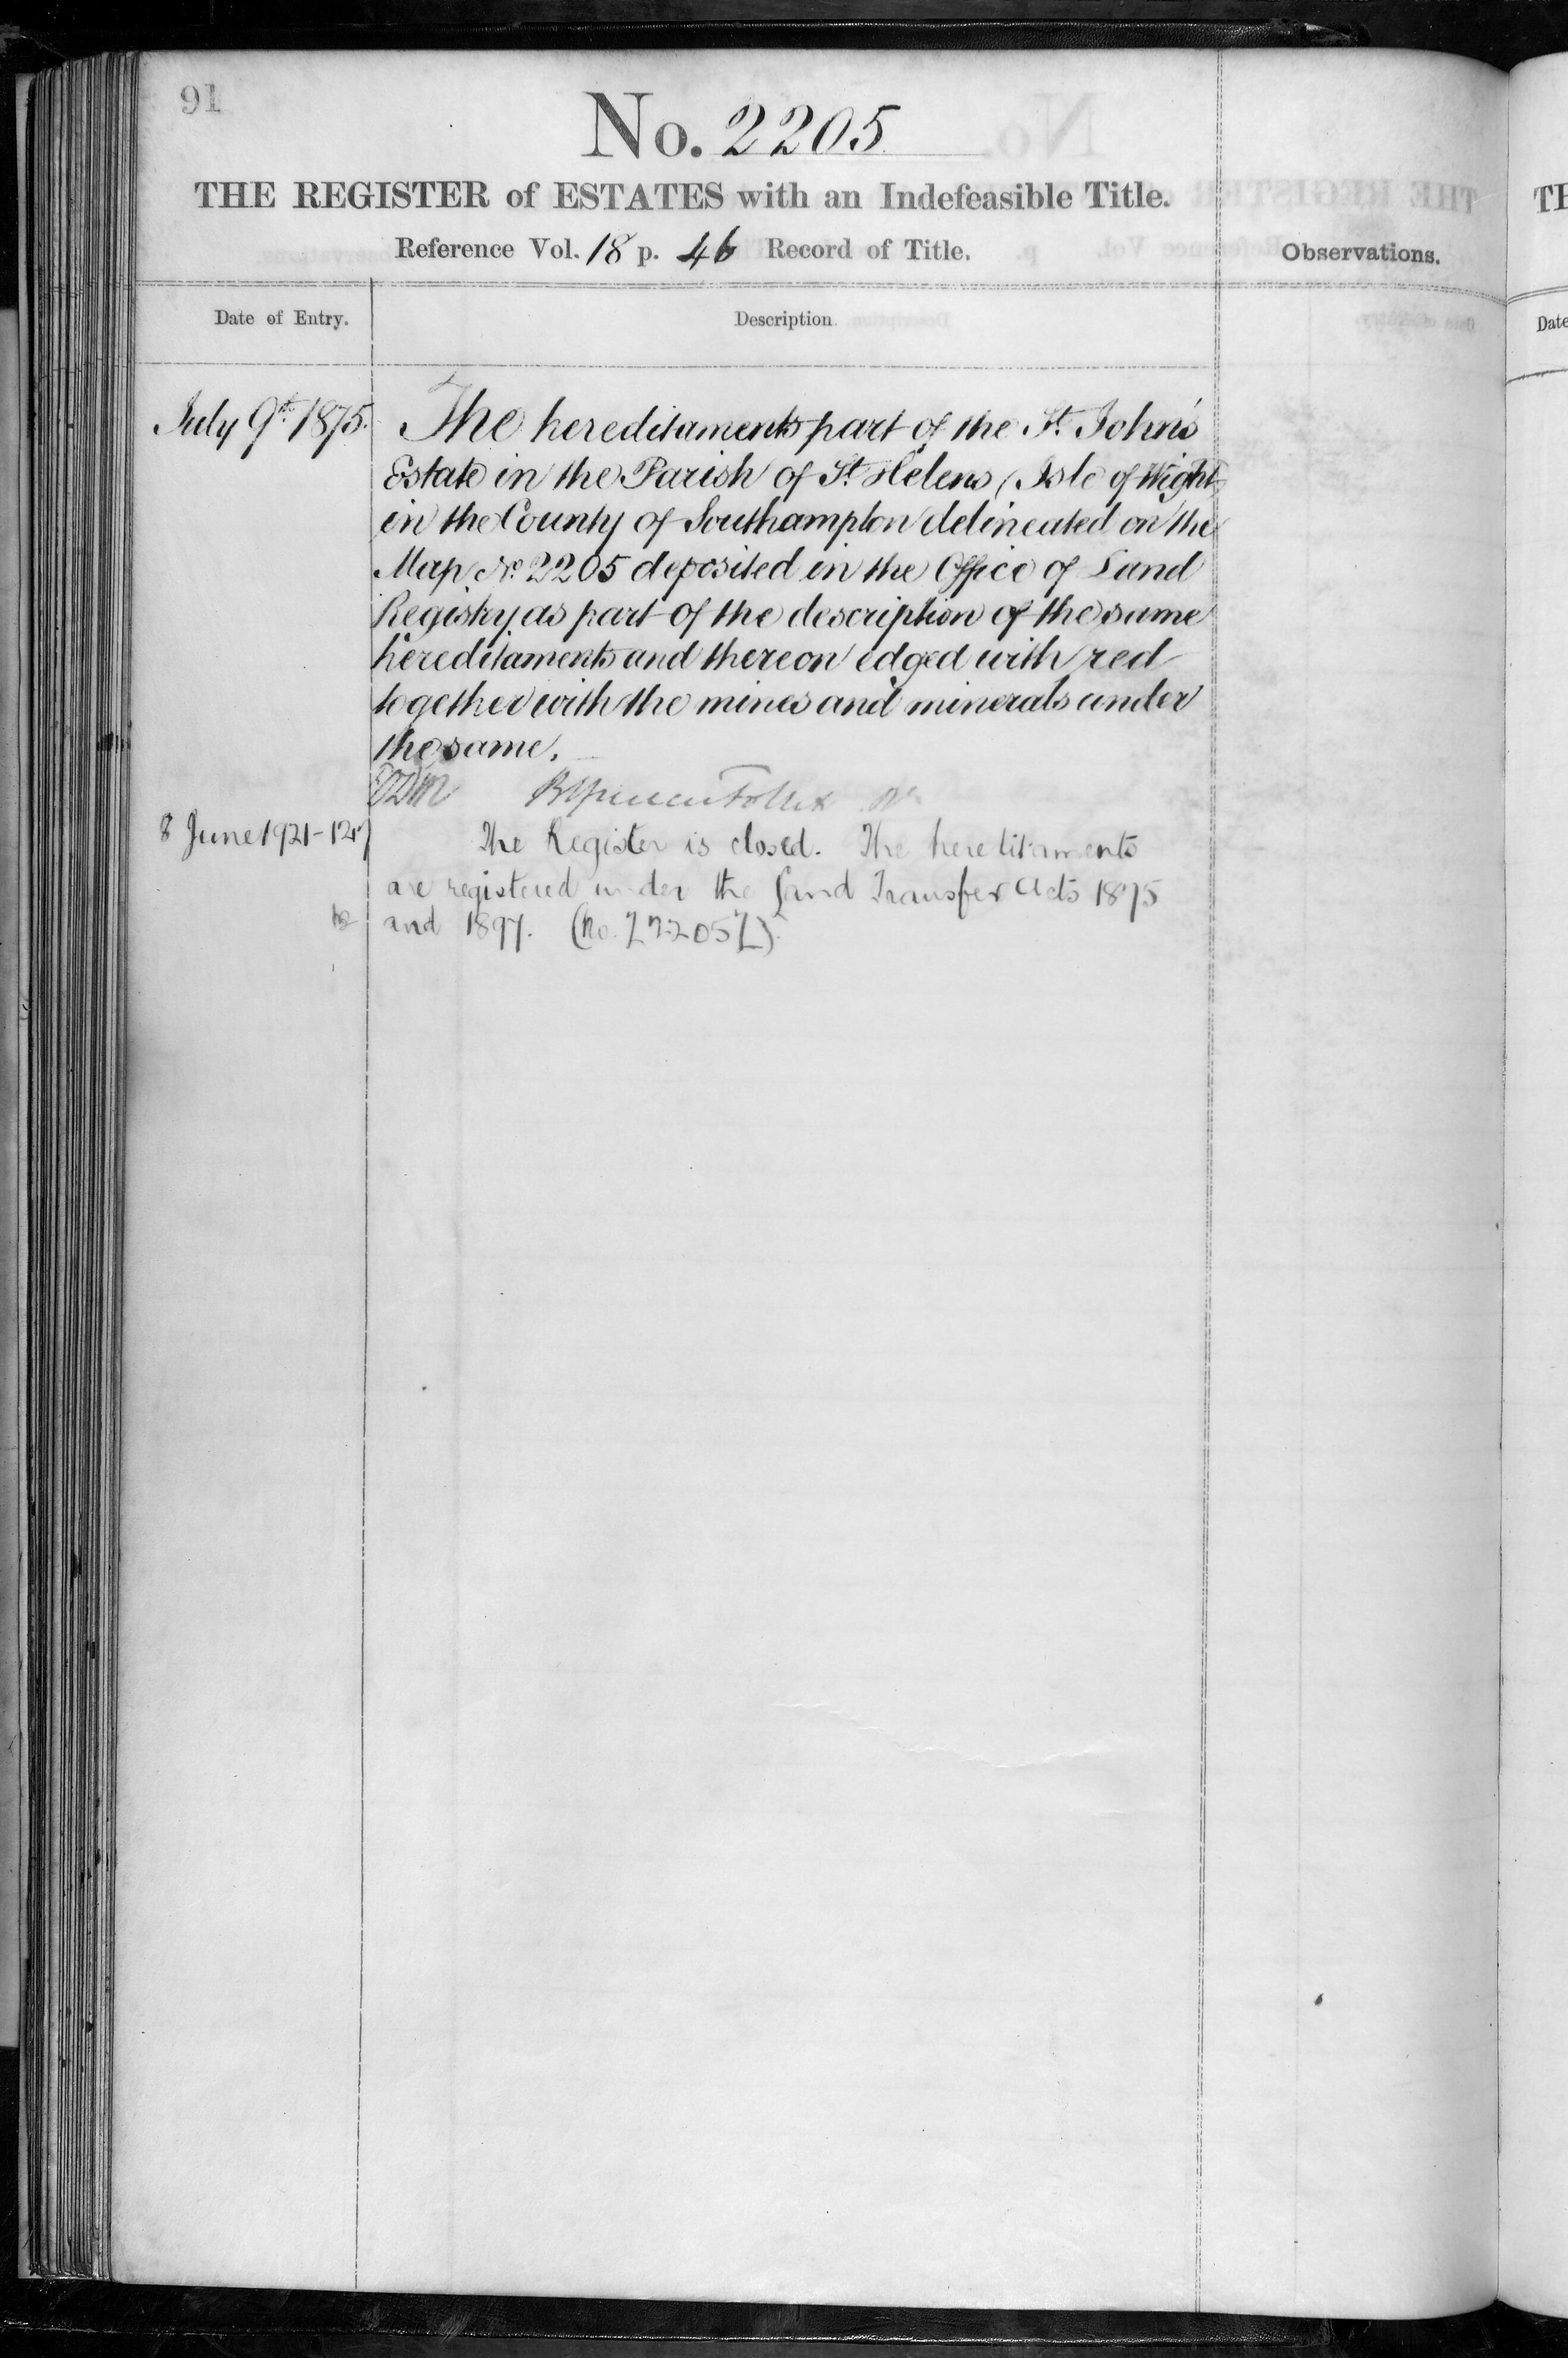 91
No. 2205
THE REGISTER of ESTATES with an Indefeasible Title.
Reference Vol. 18 p. 46 Record of Title.
Observations.
Date of Entry.
Description.
July 9th 1875.
The hereditaments part of the St. John's
Estate in the Parish of St. Helens, Isle of Wight,
in the County of Southampton delineated on the
Map No. 2205 deposited in the Office of Land
Registry as part of the description of the same
hereditaments and thereon edged with red
together with the mines and minerals under
the same.
8 June 1921
The Register is closed. The hereditaments
are registered under the Land Transfer Acts 1875
and 1897.